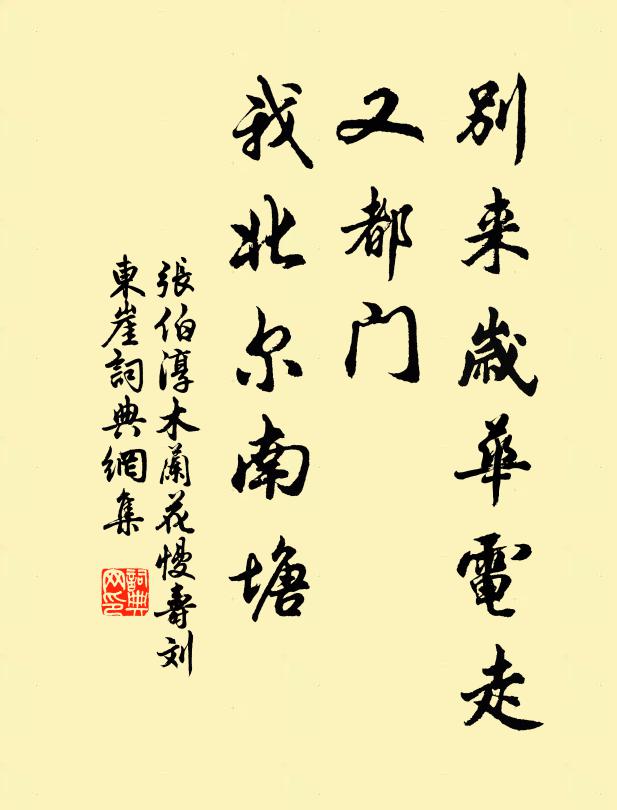 別来歲華電走
又都门
我北尔南塘
張伯淳木蘭花慢壽刘
東崖詞典網集
詞典
网印